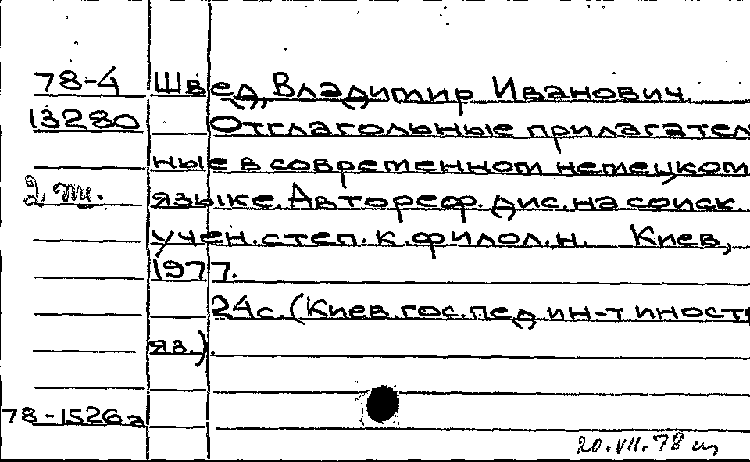 78-4 Швед, Владимир Иванович.
13280 Отглагольные прилагатель
ные в современном немецком
2 эк. языке. Автореф. дис. на соиск.
учен. степ. к. филол. н. Киев,
1977.
24 с. (Киев. гос. пед. ин-т иностр
яз.).
78-1526а
20.VII.78